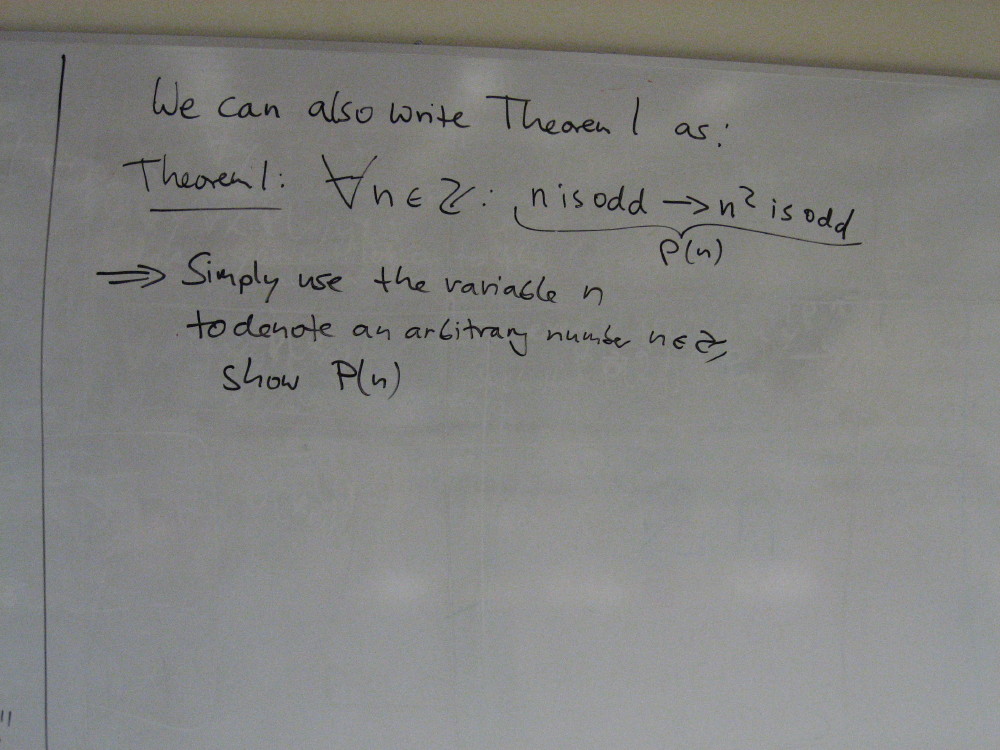 We can also write Theorem 1 as:
Theorem 1: ∀n∈ℤ: n is odd → n² is odd
P(n)
⟹ Simply use the variable n
to denote an arbitrary number n∈ℤ,
show P(n)
"